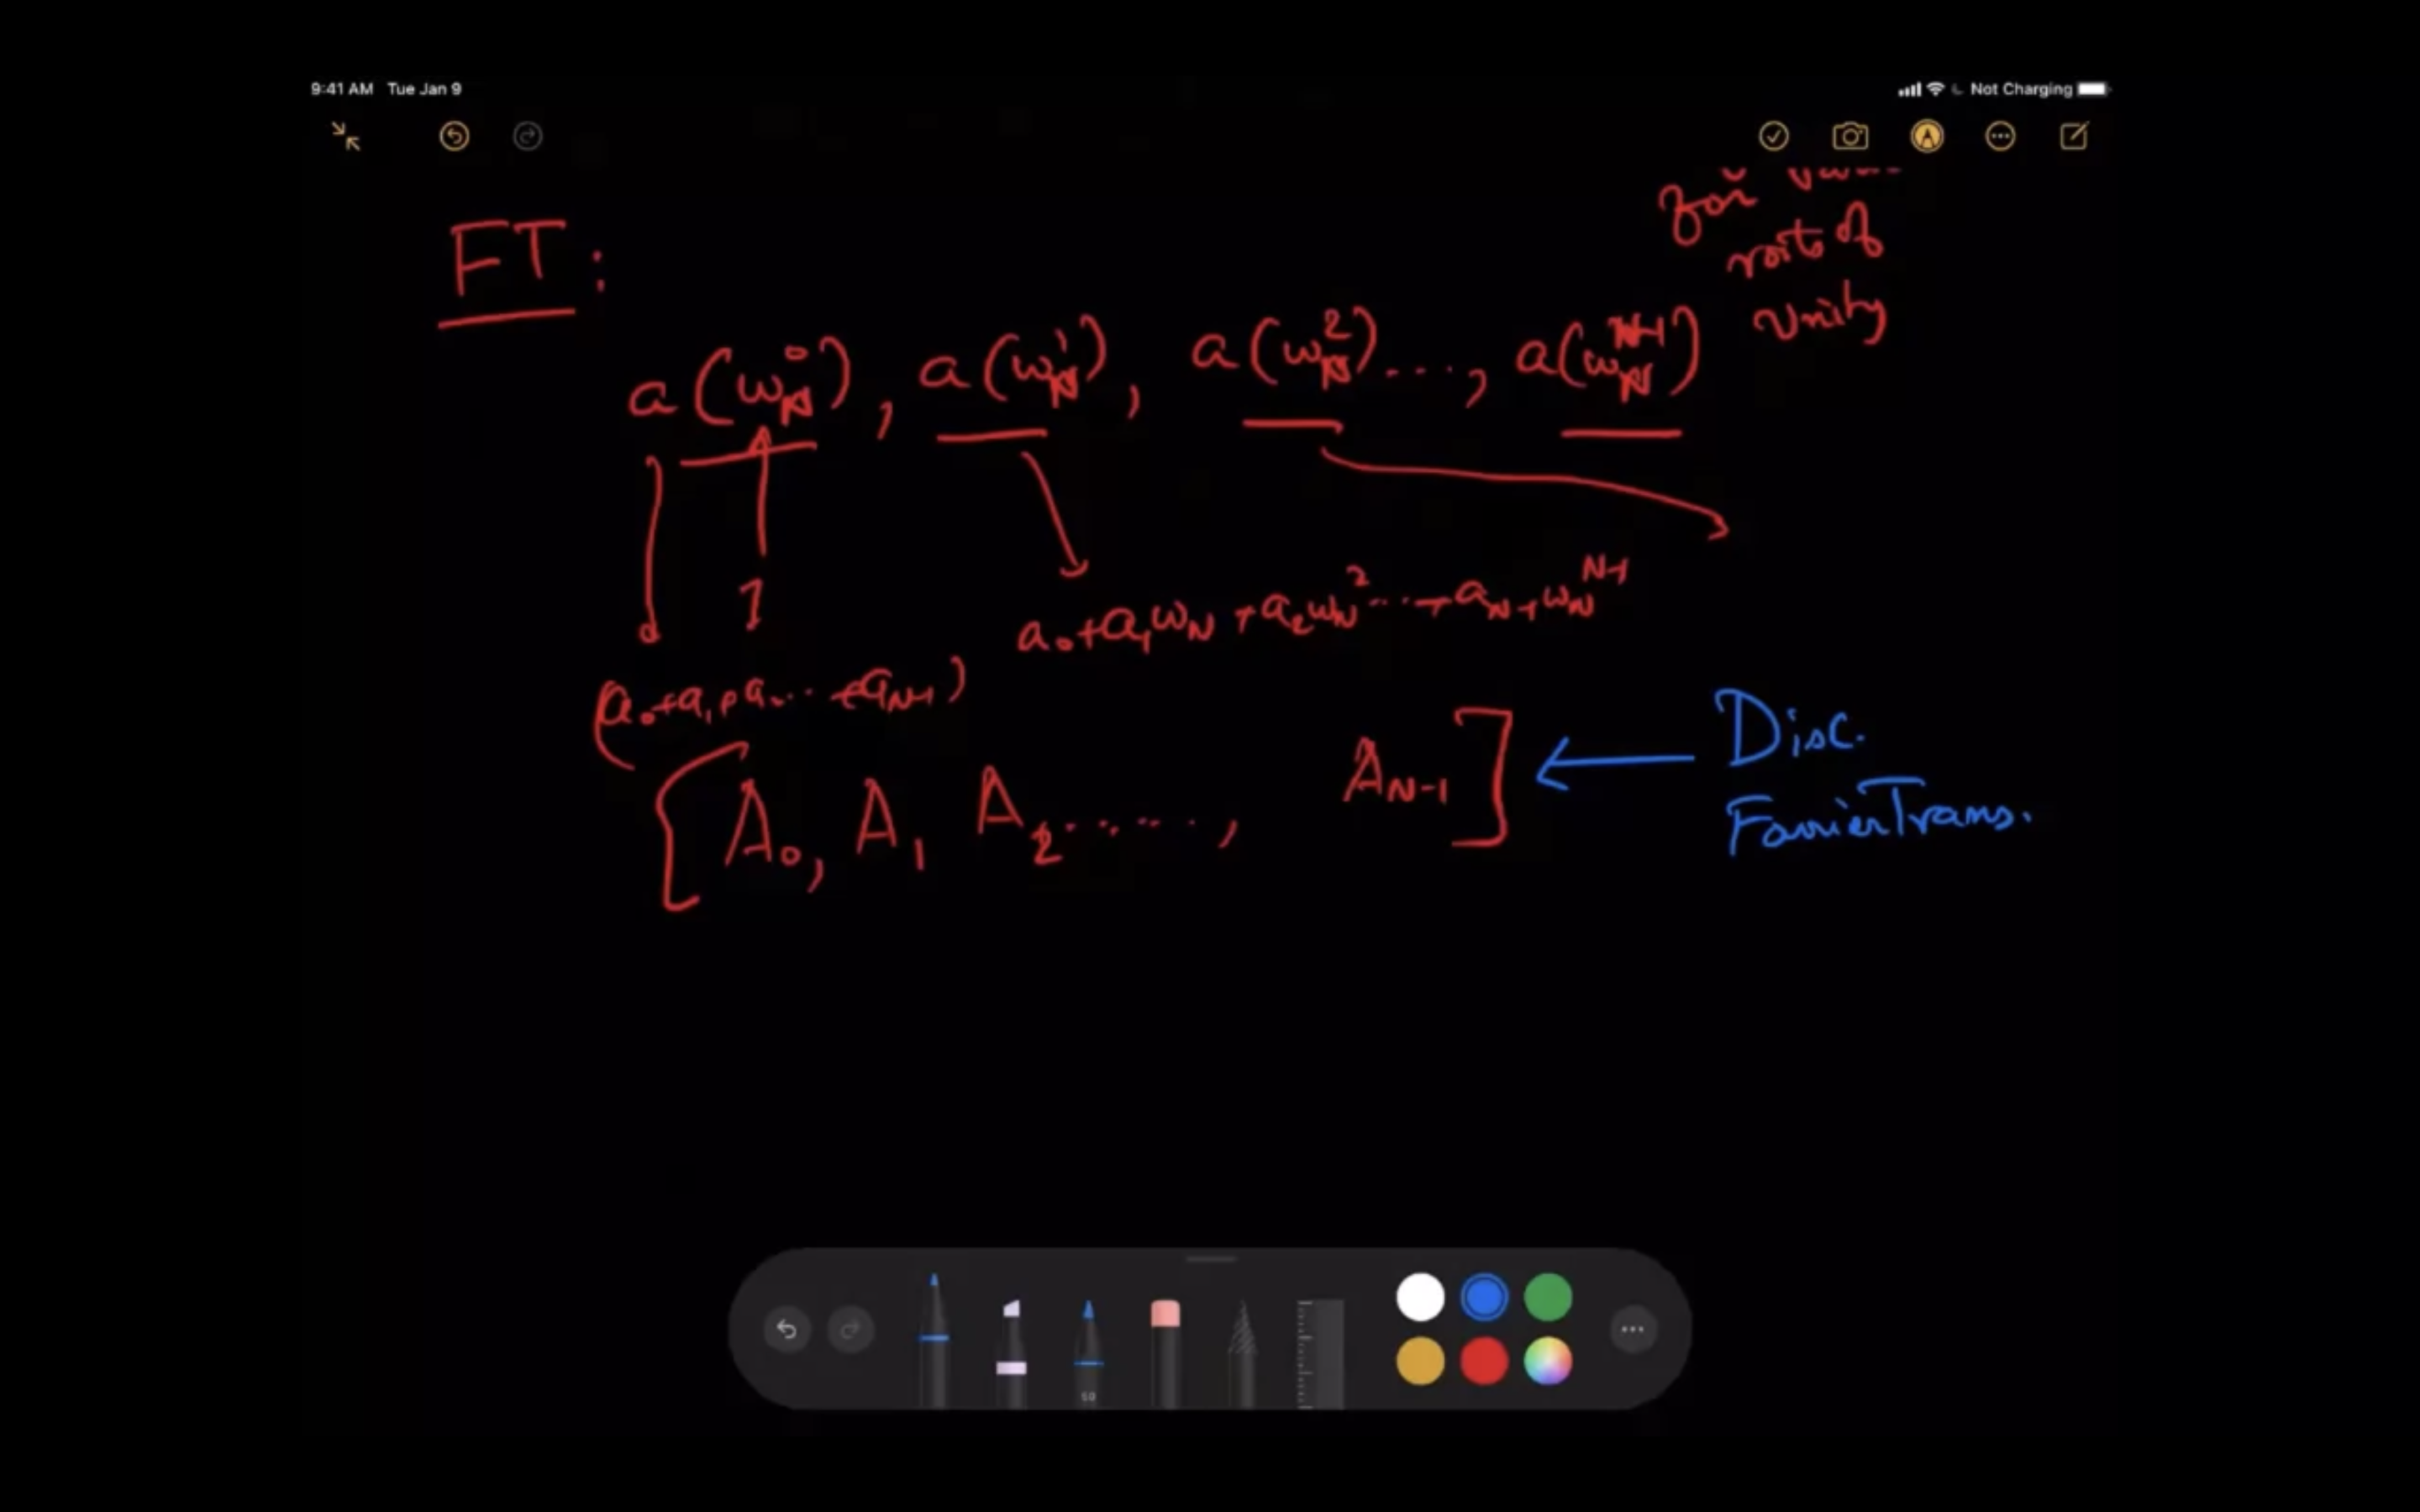 9:41 AM Tue Jan 9
Not Charging
for
root of
unity
FT:
a(ω_N^0), a(ω_N^1), a(ω_N^2)..., a(ω_N^{N-1})
1
a_0+a_1ω_N+a_2ω_N^2...+a_{N-1}ω_N^{N-1}
(a_0+a_1+a_2...+a_{N-1})
[A_0, A_1 A_2......, A_{N-1}] ← Disc.
FourierTrans.
50